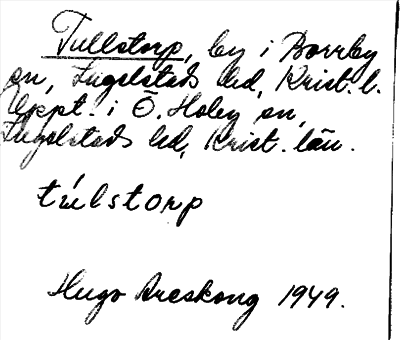 Tullstorp, by i Borrby
sn, Ingelstads hd, Krist. l.
Uppt. i Ö. Hoby sn,
Ingelstads hd, Krist. län.
túlstorp
Hugo Areskoug 1949.